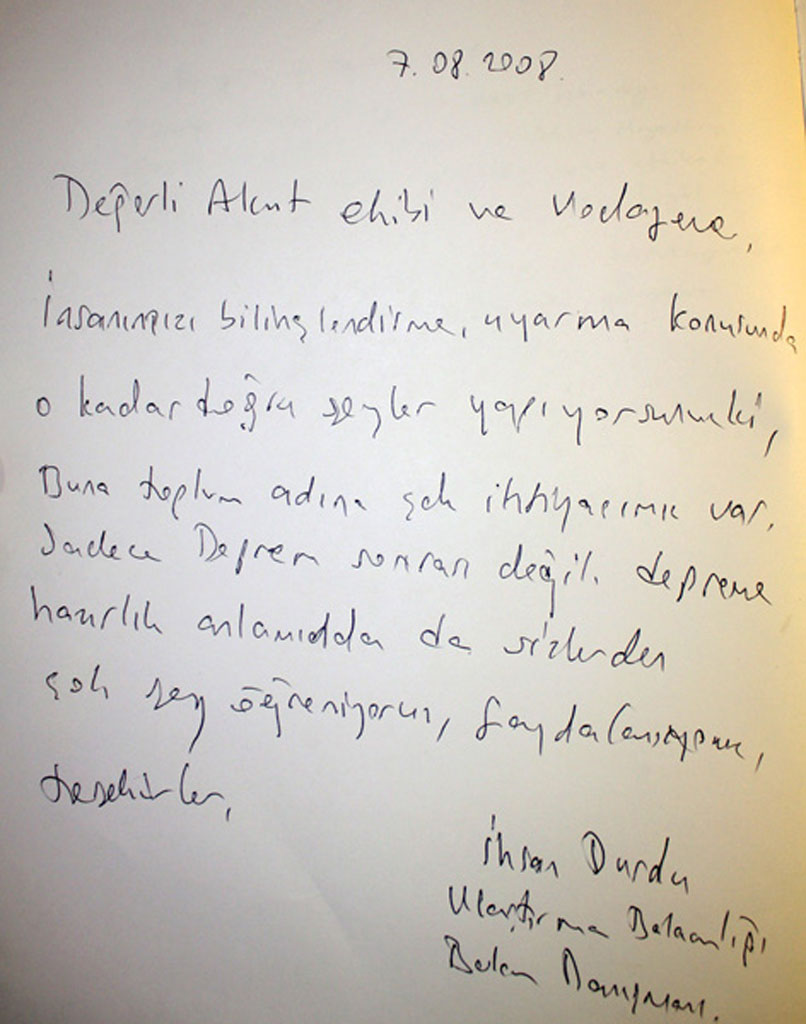 7.08.2008.
Değerli Akut ekibi ve Vodafone,
İnsanımızı bilinçlendirme, uyarma konusunda
o kadar doğru şeyler yapıyorsunuzki,
Buna toplum adına çok ihtiyacımız var.
Sadece Deprem sonrası değil. depreme
hazırlık anlamında da sizlerden
çok şey öğreniyoruz, faydalanıyoruz,
teşekkürler,
İhsan Durdu
Ulaştırma Bakanlığı
Bakan Danışmanı.